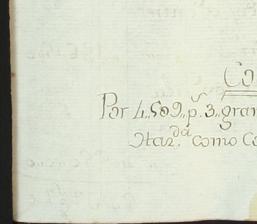 Co
Por 4,,509,,p.s 3,,gran
Haz.da como Co